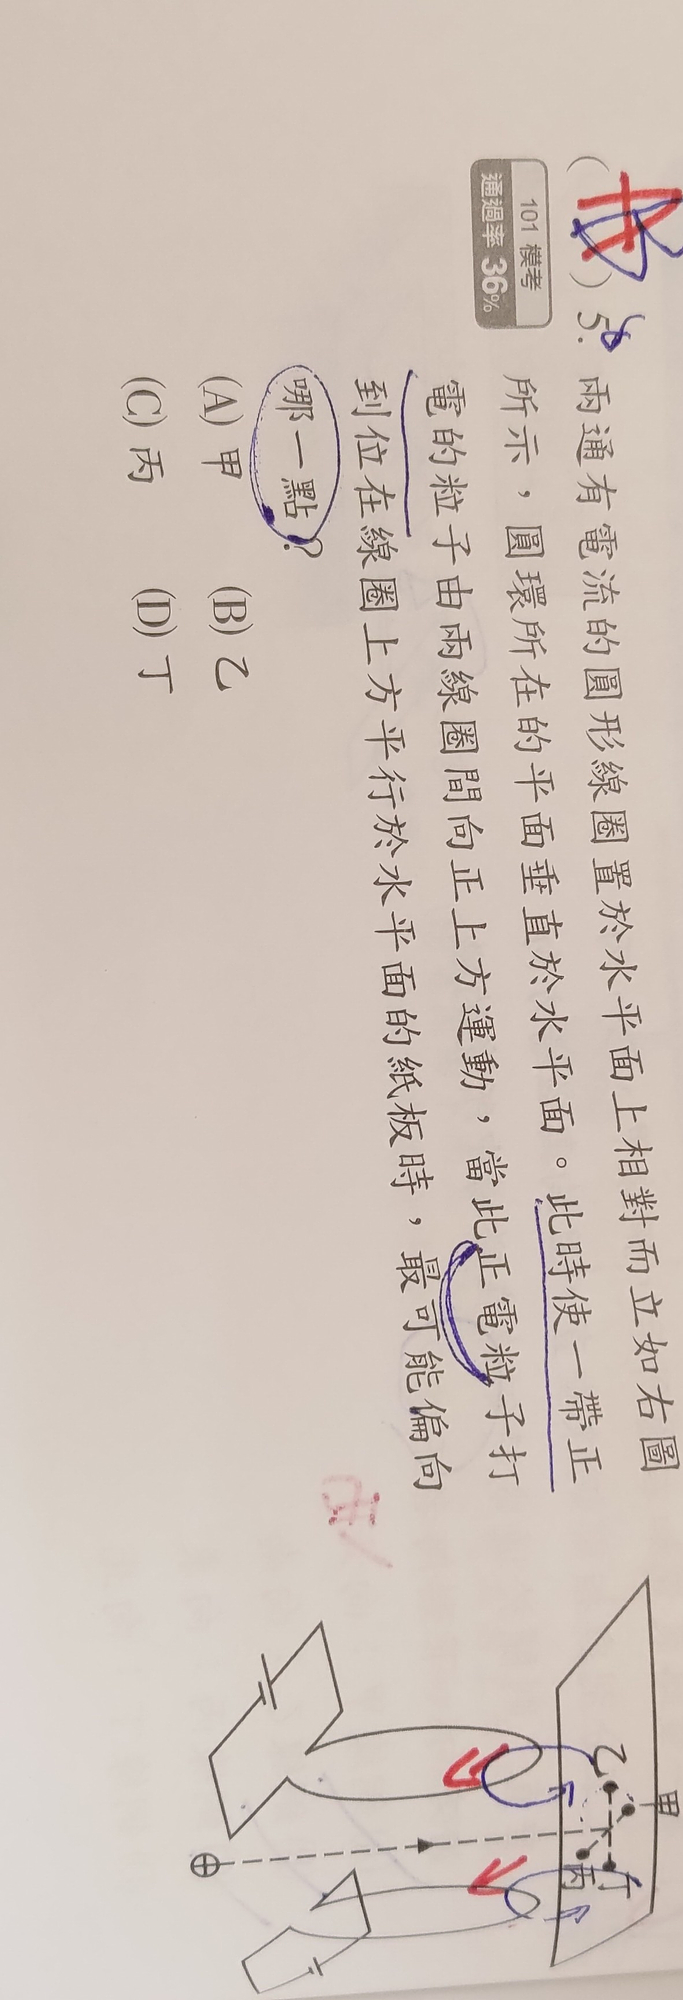 ( ) 5.
101 模考
通過率 36%
兩通有電流的圓形線圈置於水平面上相對而立如右圖
所示，圓環所在的平面垂直於水平面。此時使一帶正
電的粒子由兩線圈間向正上方運動，當此正電粒子打
到位在線圈上方平行於水平面的紙板時，最可能偏向
哪一點？
(A) 甲 (B) 乙
(C) 丙 (D) 丁
甲
乙
丙
丁